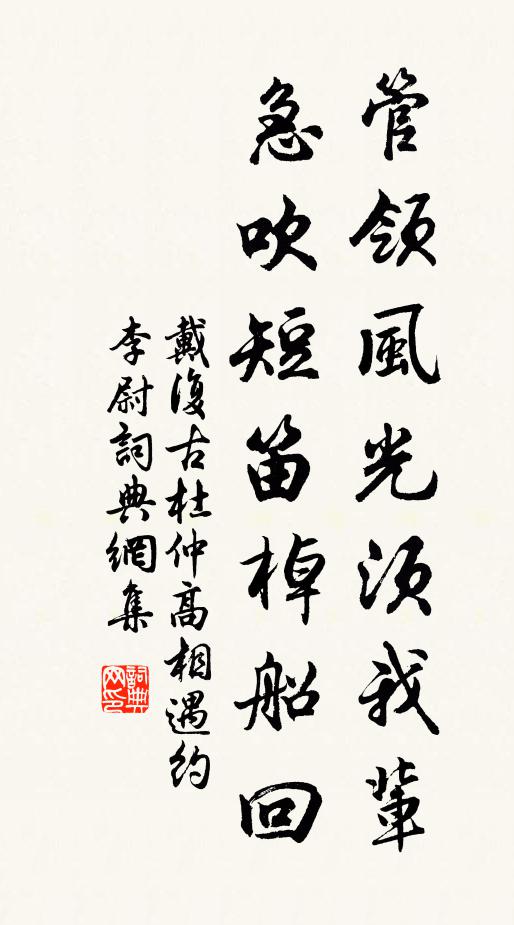 管領風光須我輩
急吹短笛棹船回
戴復古杜仲高相遇約
李尉詞典網集
詞典網印